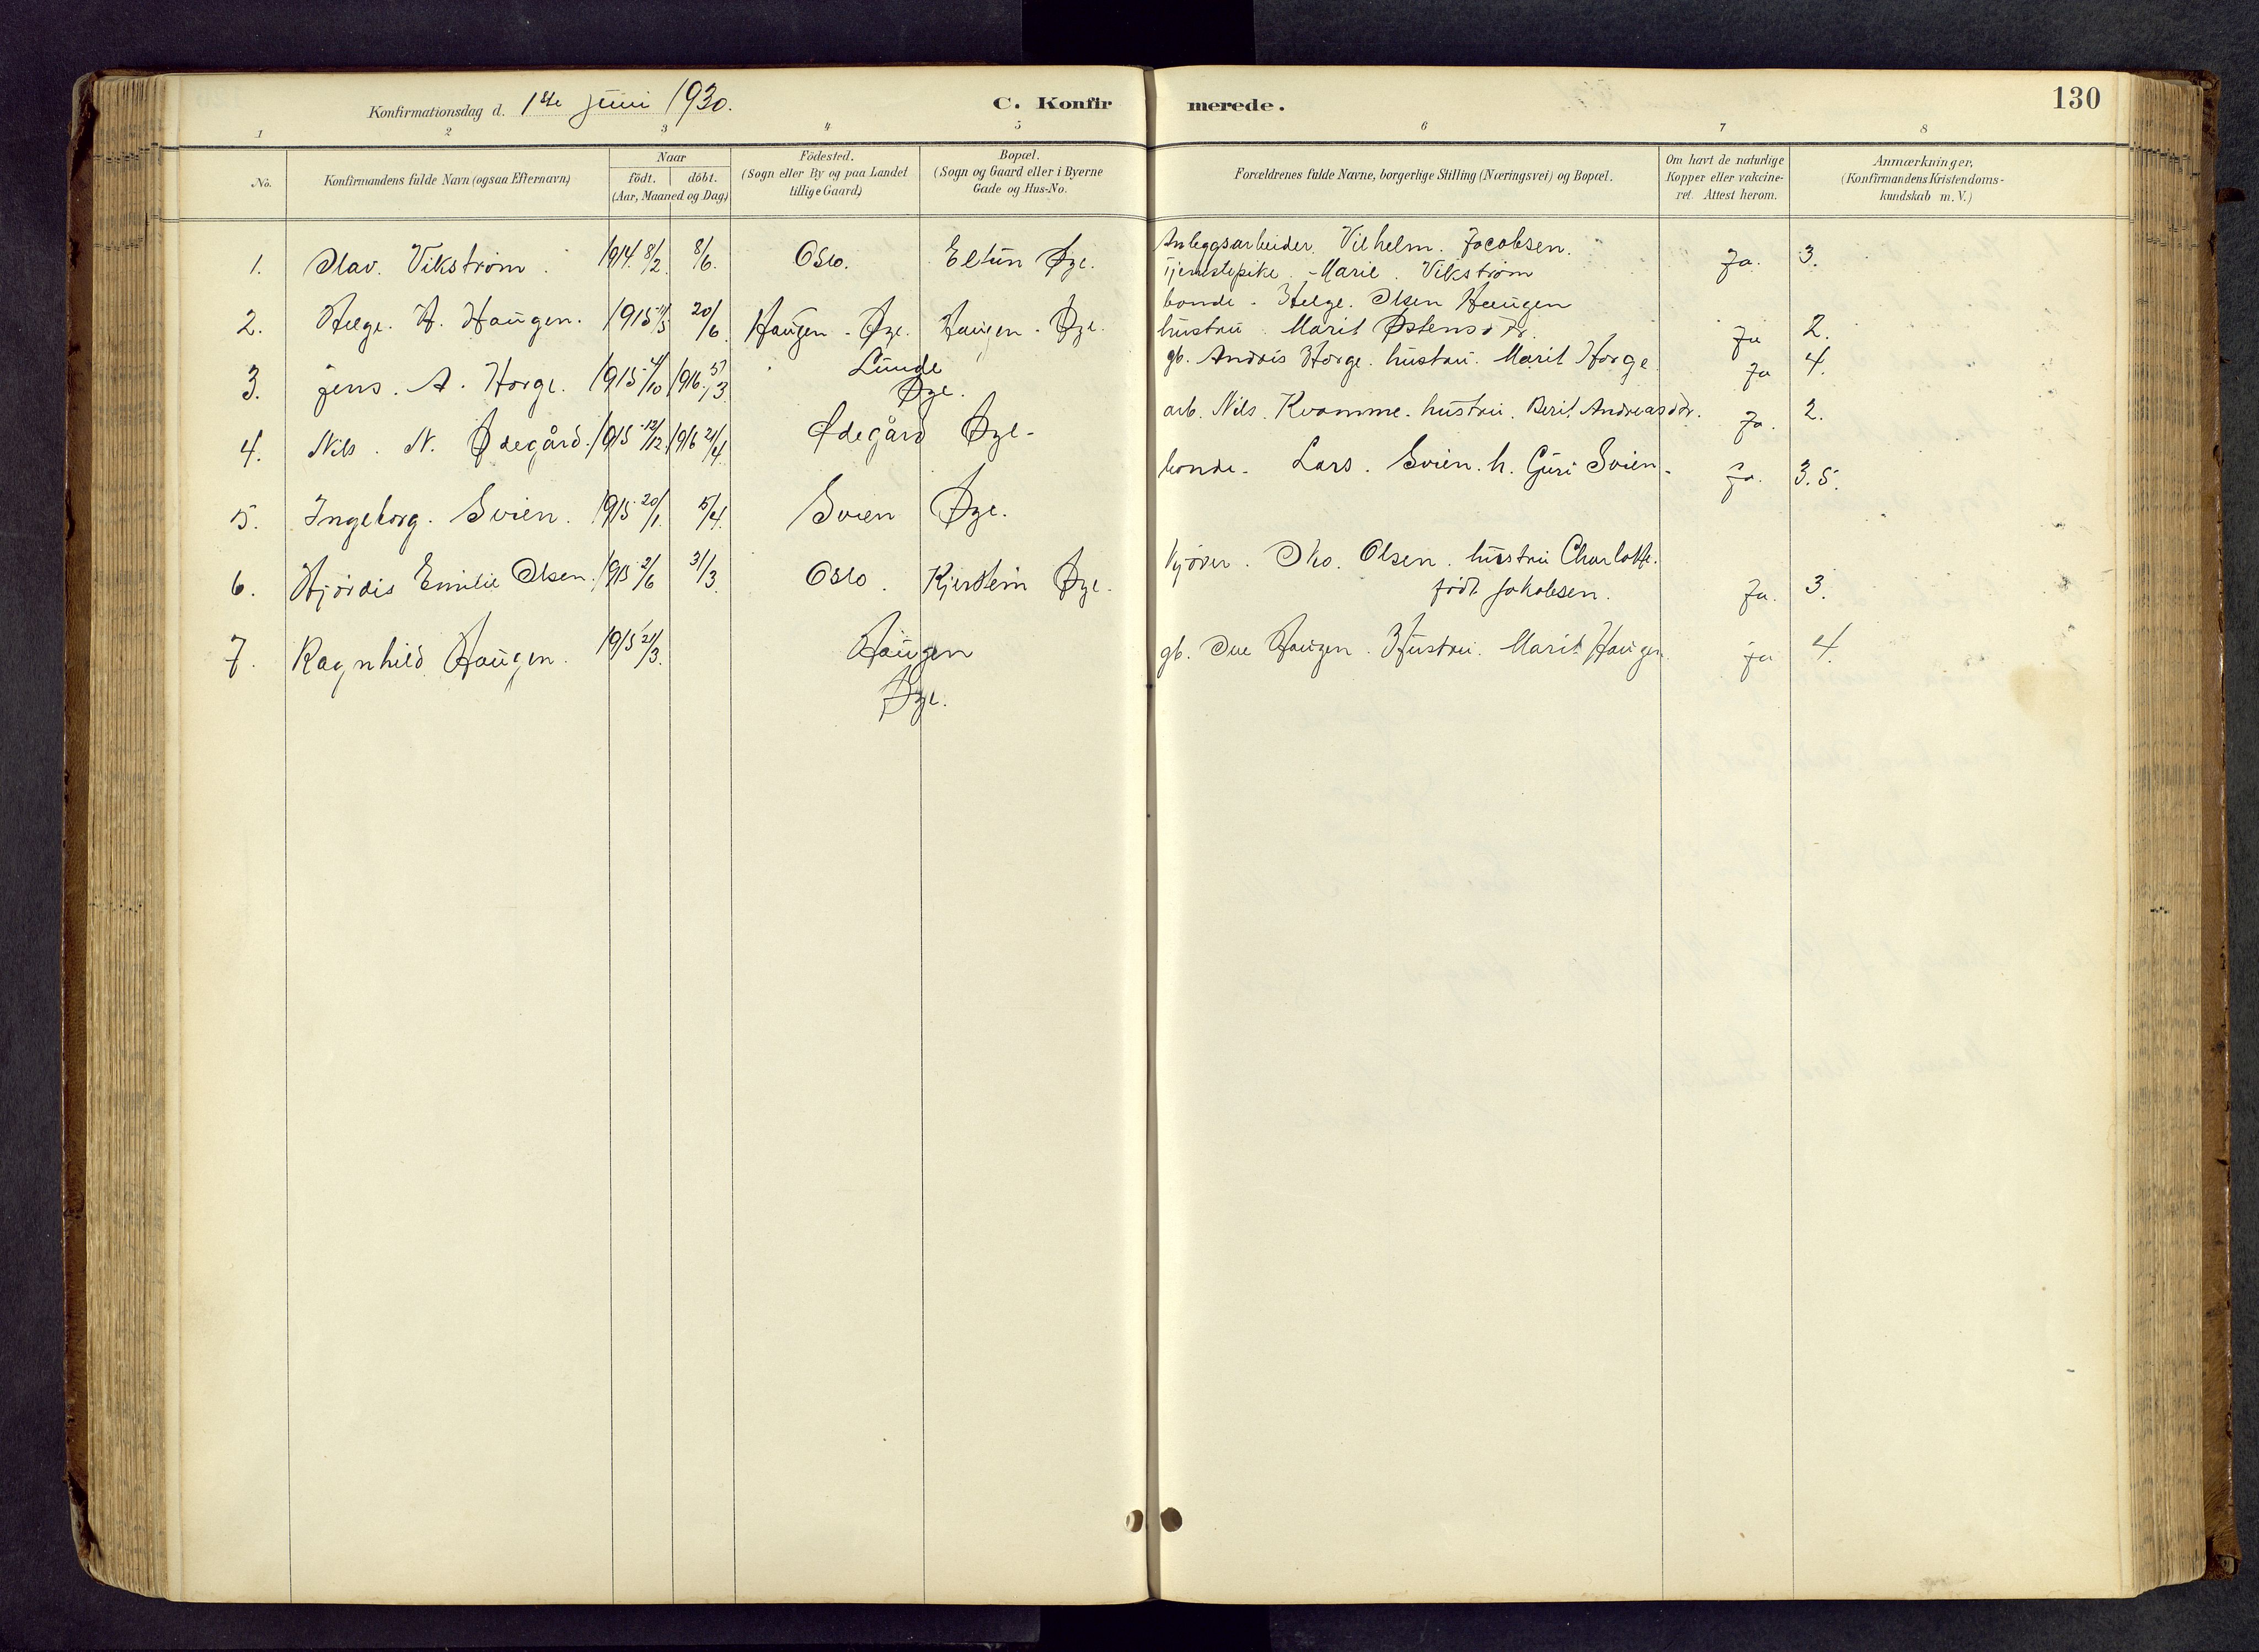 Konfirmationsdag d. 1ste juni 1930.
C. Konfirmerede.
130
1 2 3 4 5 6 7 8
No.
Konfirmandens fulde Navn (ogsaa Efternavn)
Naar
födt. döbt.
(Aar, Maaned og Dag)
Födested.
(Sogn eller By og paa Landet
tillige Gaard)
Bopæl.
(Sogn og Gaard eller i Byerne
Gade og Hus-No.
Forældrenes fulde Navne, borgerlige Stilling (Næringsvei) og Bopæl.
Om havt de naturlige
Kopper eller vakcine-
ret. Attest herom.
Anmærkninger,
(Konfirmandens Kristendoms-
kundskab m. V.)
1. Olav. Vikström. 1914. 8/2. 8/6. Oslo. Eltun Øye. Anleggsarbeider. Vilhelm. Jacobsen.
tjenestepike. Marie. Vikström Ja. 3.
2. Helge. H. Haugen. 1915 11/5 20/6. Haugen - Øye. Haugen - Øye. bonde - Helge. Olsen Haugen
hustru. Marit Østensdtr. Ja 2.
3. Jens. A. Horge. 1915 4/10 1916. 5/3. Lunde
Øye. gb. Andris Horge. hustru. Marit Horge. Ja 4.
4. Nils. N. Ødegård. 1915 12/12. 1916 21/4. Ødegård Øye - arb. Nils. Kvamme. hustru. Berit Andreasdtr. Ja. 2.
5. Ingeborg. Svien. 1915 20/1. 5/4. Svien Øye. bonde - Lars. Svien. h. Guri Svien - Ja. 3.5.
6. Hjördis Emilie Olsen. 1915 2/6 31/3. Oslo. Kjerstein Øye. kjörer. Oko. Olsen. hustru Charlotte.
födt Jakobsen. Ja. 3.
7. Ragnhild Haugen. 1915 21/3. Haugen
Øye. gb. Ole Haugen. Hustru. Marit Haugen. ja 4.